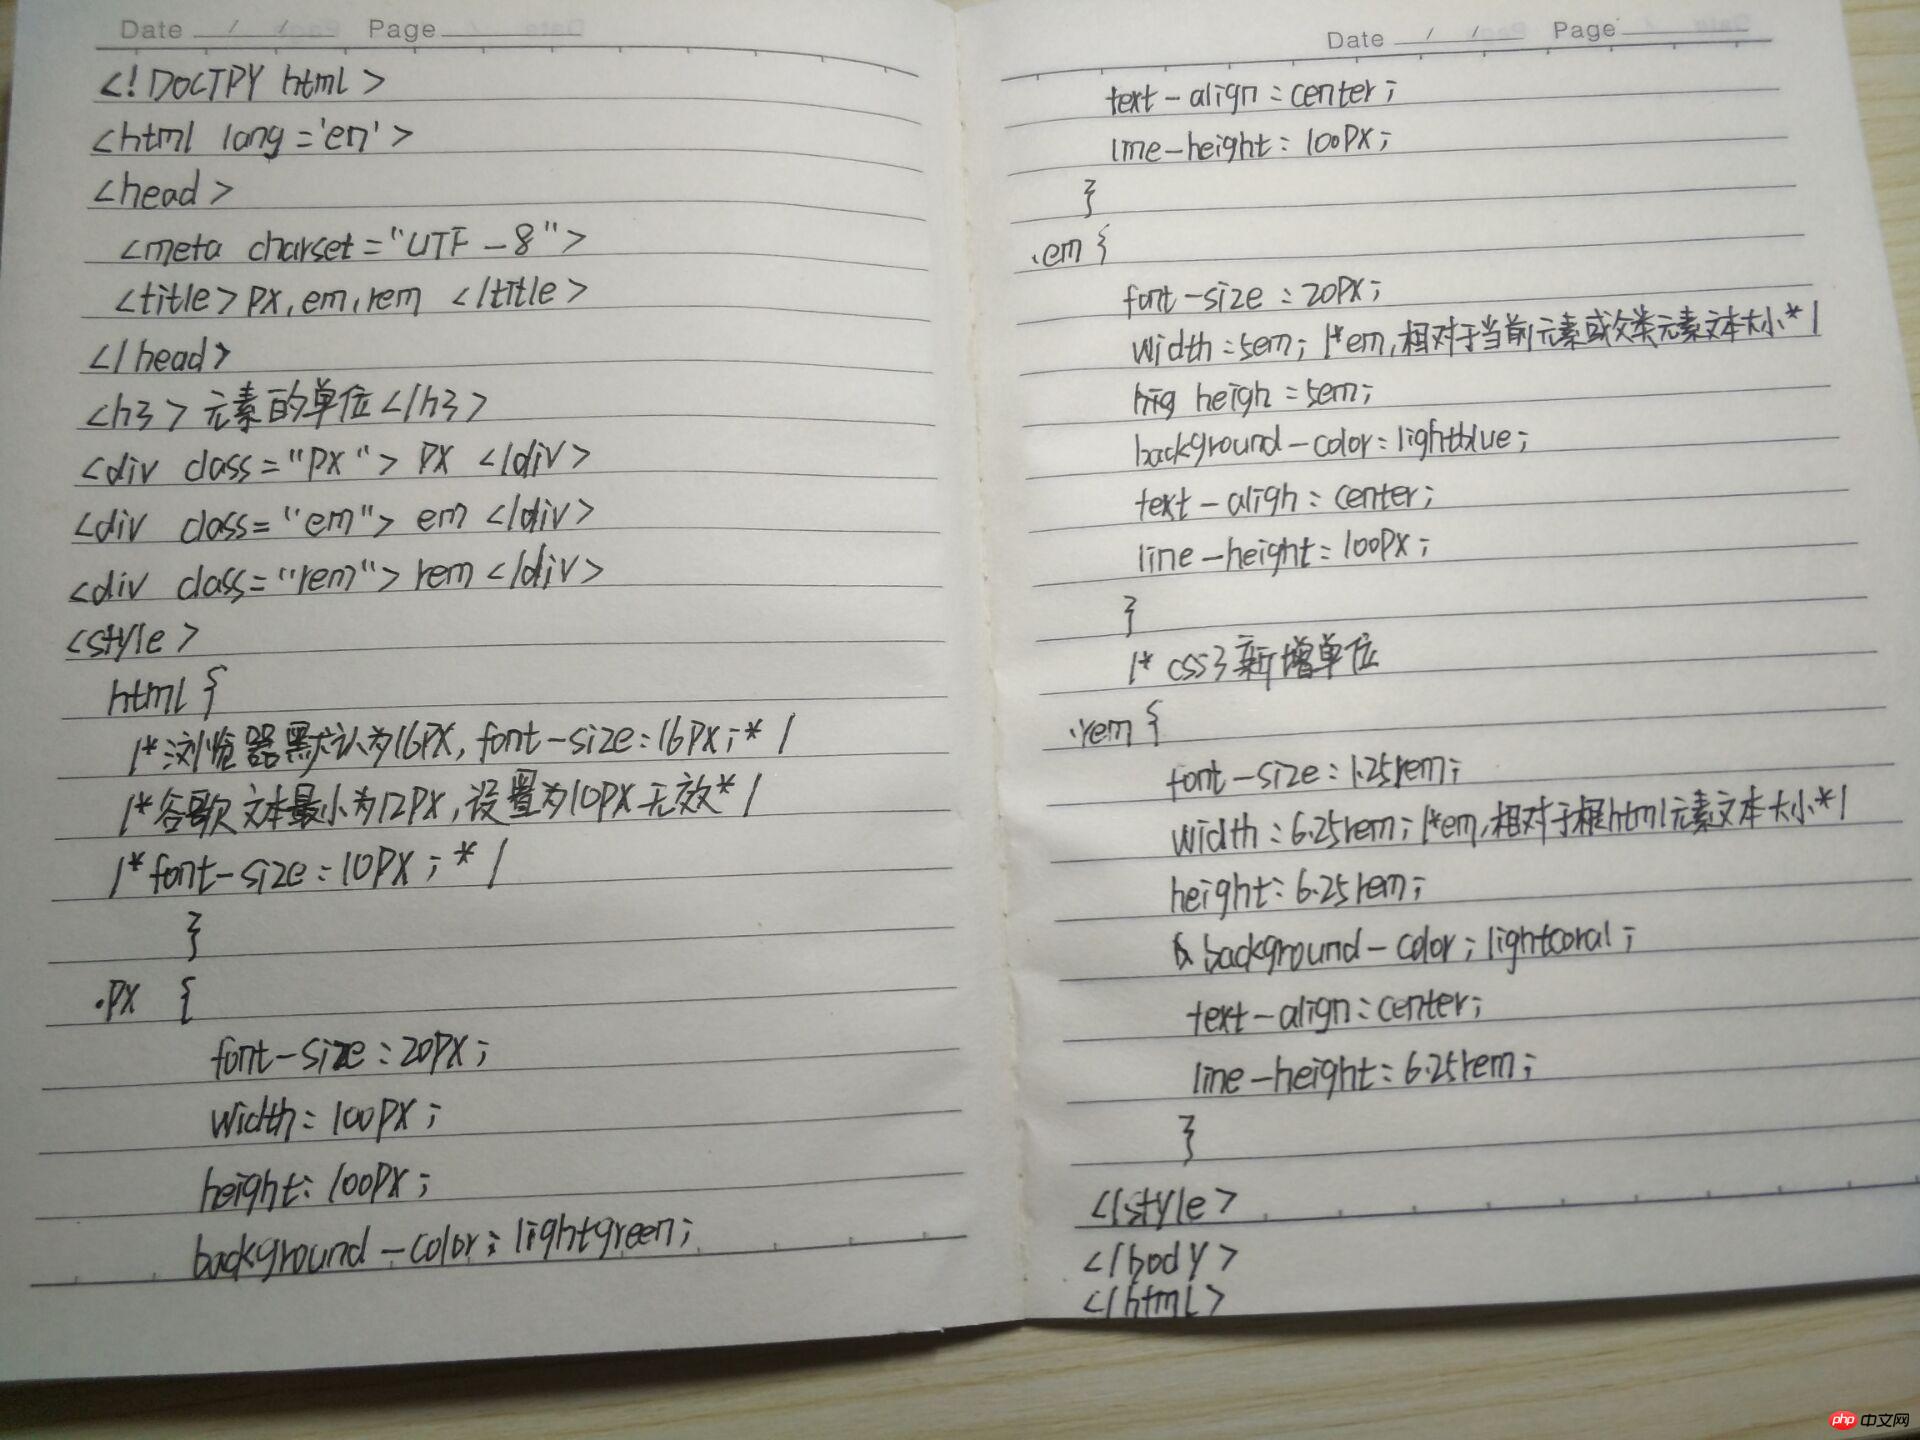 Date / / Page
<!DOCTPY html>
<html lang='en'>
<head>
<meta charset="UTF-8">
<title>px,em,rem </title>
</head>
<h3>元素的单位</h3>
<div class="px">px </div>
<div class="em">em </div>
<div class="rem">rem</div>
<style>
html {
/*浏览器默认为16px, font-size:16px;*/
/*谷歌文本最小为12px,设置为10px无效*/
/*font-size:10px;*/
}
.px {
font-size:20px;
width:100px;
height:100px;
background-color:lightgreen;
Date / / Page
text-align:center;
line-height:100px;
}
.em {
font-size:20px;
width:5em; /*em,相对于当前元素或父类元素文本大小*/
heigh:5em;
background-color:lightblue;
text-aligh:center;
line-height:100px;
}
/* css3新增单位
.rem {
font-size:1.25rem;
width:6.25rem; /*em,相对于根html元素文本大小*/
height:6.25rem;
background-color;lightcoral;
text-align:center;
line-height:6.25rem;
}
</style>
</body>
</html>
php中文网